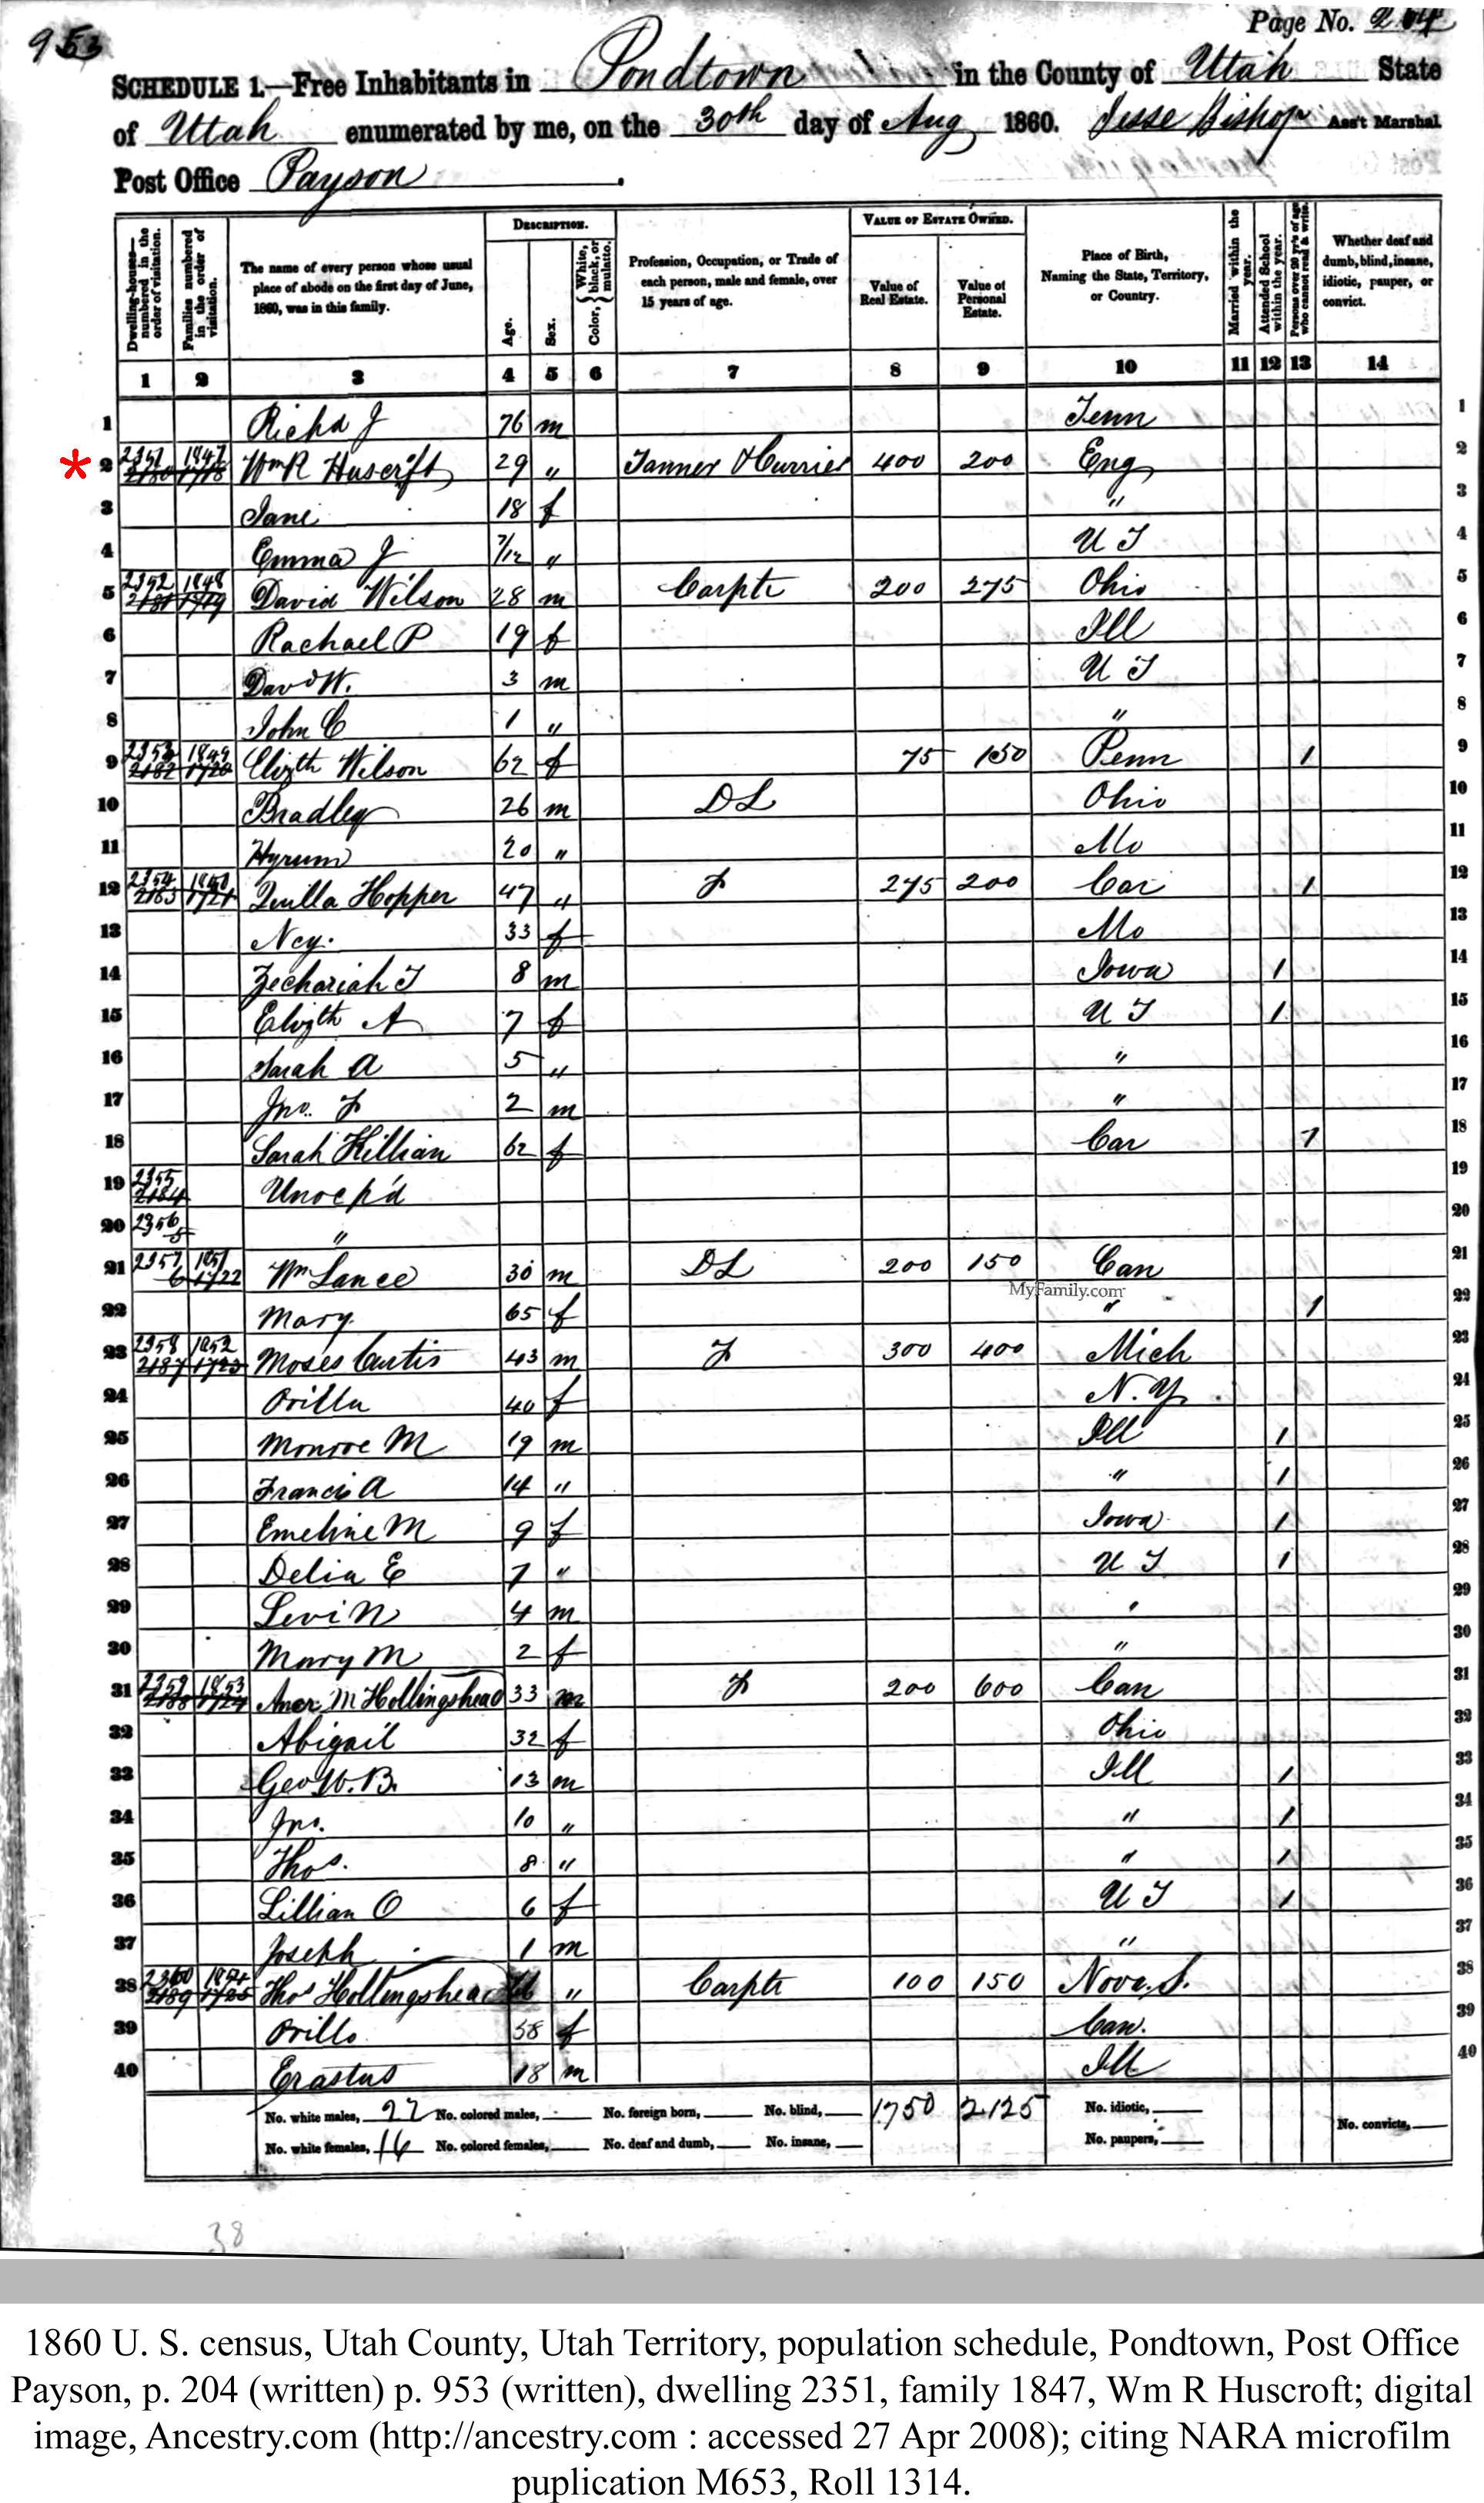 953
Page No. 204
SCHEDULE 1.—Free Inhabitants in Pondtown in the County of Utah State
of Utah enumerated by me, on the 30th day of Aug 1860. Jesse Bishop Ass't Marshal
Post Office Payson.
Dwelling-houses—numbered in the order of visitation.
Families numbered in the order of visitation.
The name of every person whose usual place of abode on the first day of June, 1860, was in this family.
DESCRIPTION.
Age.
Sex.
Color, { White, black, or mulatto.
Profession, Occupation, or Trade of each person, male and female, over 15 years of age.
VALUE OF ESTATE OWNED.
Value of Real Estate.
Value of Personal Estate.
Place of Birth, Naming the State, Territory, or Country.
Married within the year.
Attended School within the year.
Persons over 20 yr's of age who cannot read & write.
Whether deaf and dumb, blind, insane, idiotic, pauper, or convict.
1 2 3 4 5 6 7 8 9 10 11 12 13 14
1 Richd J 76 m Tenn 1
* 2 2351 1847 2180 1718 Wm R Huscrift 29 " Tanner & Currier 400 200 Eng 2
3 Jane 18 f " 3
4 Emma J 7/12 " U T 4
5 2352 1848 2181 1719 David Wilson 28 m Carptr 200 275 Ohio 5
6 Rachael P 19 f Ill 6
7 David W. 3 m U T 7
8 John C 1 " " 8
9 2353 1849 2182 1720 Elizth Wilson 62 f 75 150 Penn 1 9
10 Bradley 26 m D L Ohio 10
11 Hyrum 20 " Mo 11
12 2354 1850 2183 1721 Hopper 47 " F 275 200 Car 1 12
13 Ncy. 33 f Mo 13
14 Zechariah T 8 m Iowa 1 14
15 Elizth A 7 f U T 1 15
16 Sarah A 5 " " 16
17 Jno. F 2 m " 17
18 Sarah Killian 62 f Car 1 18
19 2355 2184 Unocp'd 19
20 2356 5 " 20
21 2357 1851 6 1722 Wm Lance 30 m D L 200 150 Can 21
MyFamily.com
22 Mary 65 f " 1 22
23 2358 1852 2187 1723 Moses Curtis 43 m F 300 400 Mich 23
24 Orilla 40 f N. Y. 24
25 Monroe M 19 m Ill 1 25
26 Francis A 14 " " 1 26
27 Emeline M 9 f Iowa 1 27
28 Delia E 7 " U T 1 28
29 Levi N 4 m " 29
30 Mary M 2 f " 30
31 2359 1853 2188 1724 M Hollingshead 33 m F 200 600 Can 31
32 Abigail 32 f Ohio 32
33 Geo W. B. 13 m Ill 1 33
34 Jno. 10 " " 1 34
35 Thos. 8 " " 1 35
36 Lillian O 6 f U T 1 36
37 Joseph 1 m " 37
38 2360 1854 2189 1725 Thos Hollingshead " Carptr 100 150 Nova. S. 38
39 Orilla 58 f Can. 39
40 Erastus 18 m Ill 40
No. white males, 22 No. colored males, No. foreign born, No. blind, 1750 2125 No. idiotic,
No. convicts,
No. white females, 16 No. colored females, No. deaf and dumb, No. insane, No. paupers,
38
1860 U. S. census, Utah County, Utah Territory, population schedule, Pondtown, Post Office
Payson, p. 204 (written) p. 953 (written), dwelling 2351, family 1847, Wm R Huscroft; digital
image, Ancestry.com (http://ancestry.com : accessed 27 Apr 2008); citing NARA microfilm
puplication M653, Roll 1314.